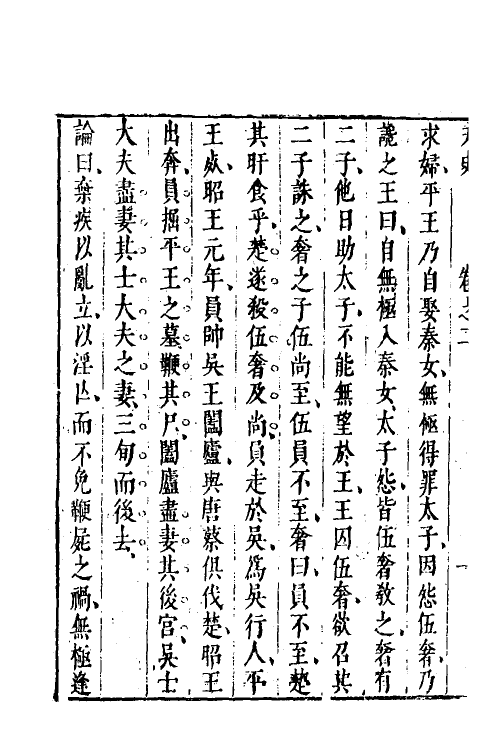 卷之二
求婦平王乃自娶秦女無極得罪太子因怨伍奢乃
讒之王曰自無極入秦女太子怨皆伍奢教之奢有
二子他日助太子不能無望於王王囚伍奢欲召其
二子誅之奢之子伍尚至伍員不至奢曰員不至楚
其旰食乎楚遂殺伍奢及尚員走於吳爲吳行人平
王𣦸昭王元年員帥吳王闔廬與唐蔡俱伐楚昭王
出奔員掘平王之墓鞭其尸闔廬盡妻其後宮吳士
大夫盡妻其士大夫之妻三旬而後去
論曰棄疾以亂立以淫亾而不免鞭屍之禍無極逢